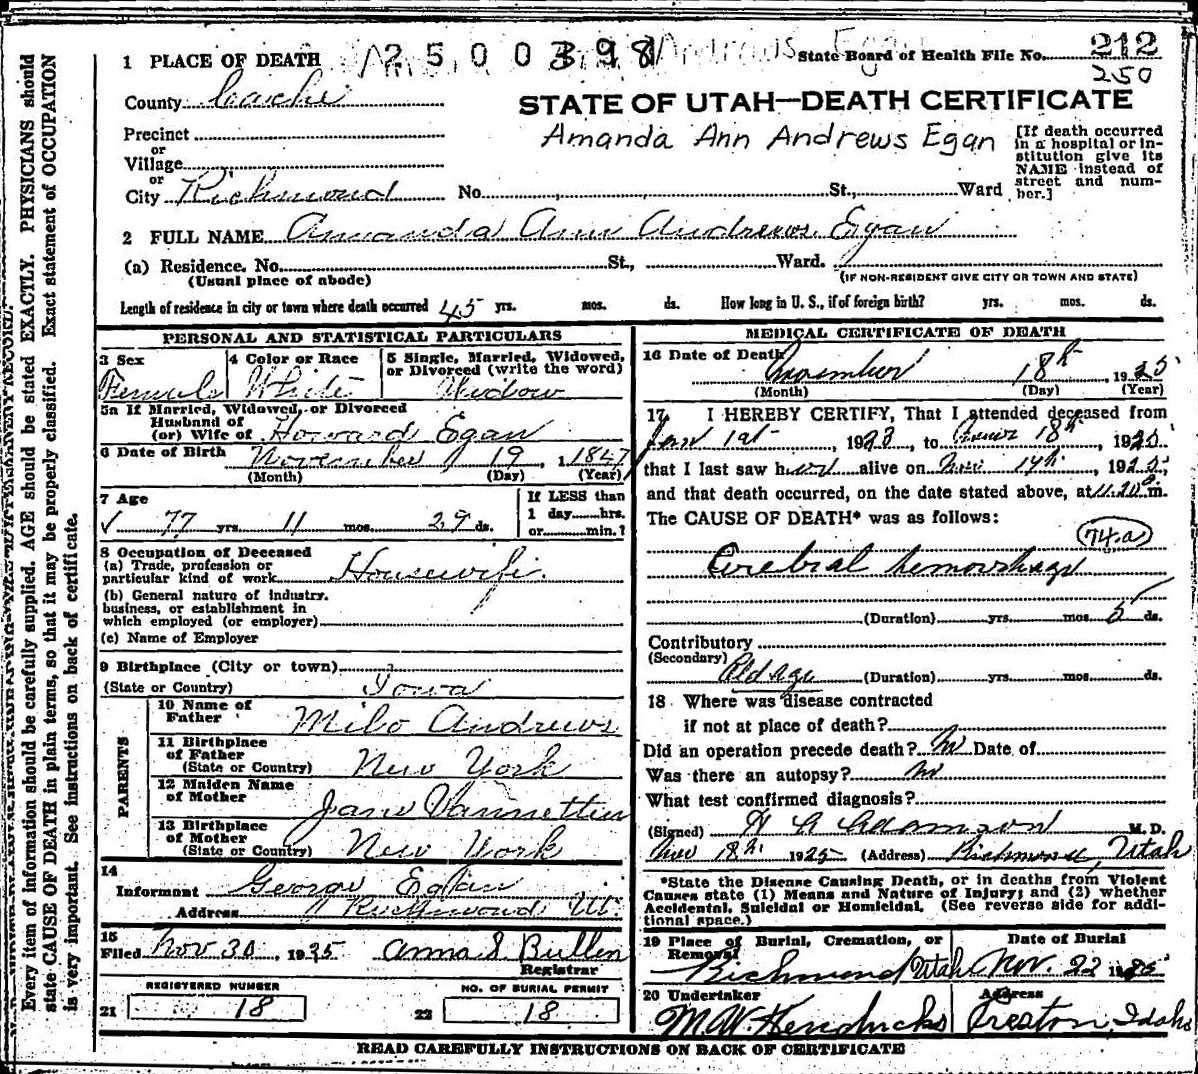 2500398
State Board of Health File No. 212
250
1 PLACE OF DEATH
County Cache
STATE OF UTAH—DEATH CERTIFICATE
Amanda Ann Andrews Egan
Precinct
or
Village
or
City Richmond No. St., Ward
[If death occurred in a hospital or institution give its NAME instead of street and number.]
2 FULL NAME Amanda Ann Andrews Egan
(a) Residence. No. St., Ward.
(Usual place of abode)
(IF NON-RESIDENT GIVE CITY OR TOWN AND STATE)
Length of residence in city or town where death occurred 45 yrs. mos. ds. How long in U. S., if of foreign birth? yrs. mos. ds.
PERSONAL AND STATISTICAL PARTICULARS
3 Sex
Female
4 Color or Race
White
5 Single, Married, Widowed, or Divorced (write the word)
Widow
5a If Married, Widowed, or Divorced
Husband of
(or) Wife of Howard Egan
6 Date of Birth November 19, 1847
(Month) (Day) (Year)
7 Age
77 yrs. 11 mos. 29 ds.
If LESS than
1 day......hrs.
or......min.?
8 Occupation of Deceased
(a) Trade, profession or
particular kind of work Housewife
(b) General nature of industry.
business, or establishment in
which employed (or employer)
(c) Name of Employer
9 Birthplace (City or town)
(State or Country) Iowa
PARENTS
10 Name of
Father Milo Andrews
11 Birthplace
of Father
(State or Country) New York
12 Maiden Name
of Mother Jane Vannetten
13 Birthplace
of Mother
(State or Country) New York
14
Informant George Egan
Address Richmond Ut.
15
Filed Nov 30, 1925 Anna S Bullen
Registrar
REGISTERED NUMBER
21 18
NO. OF BURIAL PERMIT
22 18
MEDICAL CERTIFICATE OF DEATH
16 Date of Death
November 18th, 1925
(Month) (Day) (Year)
17 I HEREBY CERTIFY, That I attended deceased from
Jan 1st, 1923, to Nov 18th, 1925,
that I last saw her alive on Nov 14th, 1925,
and that death occurred, on the date stated above, at 11.20 m.
The CAUSE OF DEATH* was as follows:
74.a
Cerebral hemorrhage
(Duration) yrs. mos. 5 ds.
Contributory
(Secondary)
Old Age (Duration) yrs. mos. ds.
18 Where was disease contracted
if not at place of death?
Did an operation precede death? No Date of
Was there an autopsy? No
What test confirmed diagnosis?
(Signed) Adamson M. D.
Nov 18th 1925 (Address) Richmond, Utah
*State the Disease Causing Death, or in deaths from Violent
Causes state (1) Means and Nature of Injury; and (2) whether
Accidental, Suicidal or Homicidal. (See reverse side for addi-
tional space.)
19 Place of Burial, Cremation, or
Removal
Richmond Utah
Date of Burial
Nov. 22 1925
20 Undertaker
M. W. Hendricks
Address
Preston, Idaho
READ CAREFULLY INSTRUCTIONS ON BACK OF CERTIFICATE
Every item of information should be carefully supplied. AGE should be stated EXACTLY. PHYSICIANS should
state CAUSE OF DEATH in plain terms, so that it may be properly classified. Exact statement of OCCUPATION
is very important. See instructions on back of certificate.